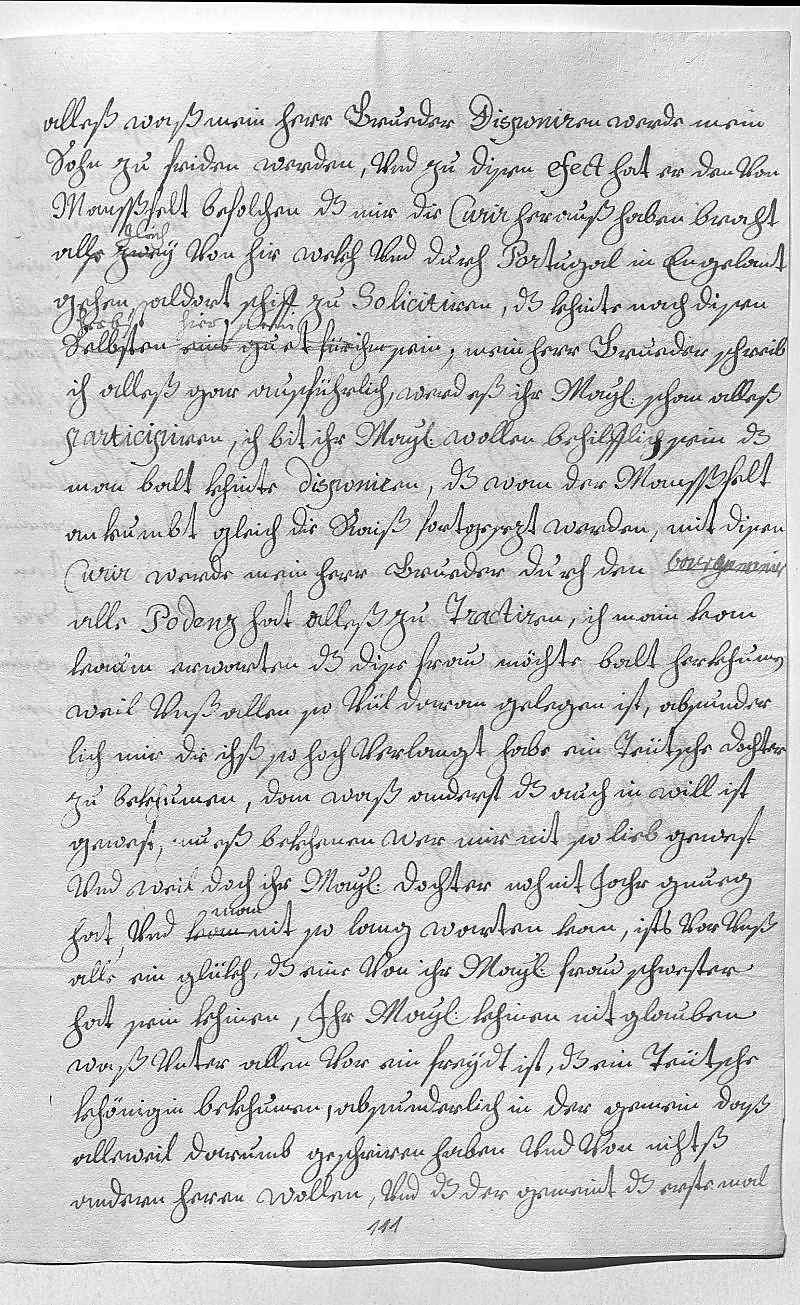 alleß waß mein herr Brueder Disponiren werde mein
Sohn zu friden werden, Vnd zu disen efect hat er den Von
Manßfelt befolchen dz mir die Curir herauß haben bracht
alß durch zwey Von hir welch Vnd durch Portugal in Engelant
gehen, aldort schiff zu Solicitiren, dz khinte nach disen
Selbsten guet für ihm sein, mein herr Brueder schreib
ich alleß gar ausführlich, werd eß ihr Mayl: schon alleß
participiren, ich bit ihr Mayl: wollen behilfflich sein dz
man balt khinte disponiren, dz wan der Manßfelt
ankumbt gleich die Raiß fortgesezt werden, mit disen
Curir werde mein herr Brueder durch den
alle Podenz hat alleß zu Tractiren, ich main kan
kaum erwarten dz dise frau möchte balt herkhumen
weil Vnß allen so Vil daran gelegen ist, absunder
lich mir die ihß so hoch Verlangt habe ein Teütsche dochter
zu bekhumen, dan waß anderst dz auch in will ist
gewest, mueß bekhenen wer mir nit so lieb gewest
Vnd weil doch ihr Mayl: dochter noh nit Jahr genueg
hat, Vnd man nit so lang warten kan, ists Vor Vnß
alle ein glükh, dz eine Von ihr Mayl: frau schwester
hat sein khinen, Ihr Mayl: khinen nit glauben
waß Vnter allen Vor ein freydt ist, dz ein Teütsche
khönigin bekhumen, absunderlich in der gemein daß
alleweil darumb geschriren haben Vnd Von nichtß
andern heren wollen, Vnd dz der gemeint dz erste mal
111